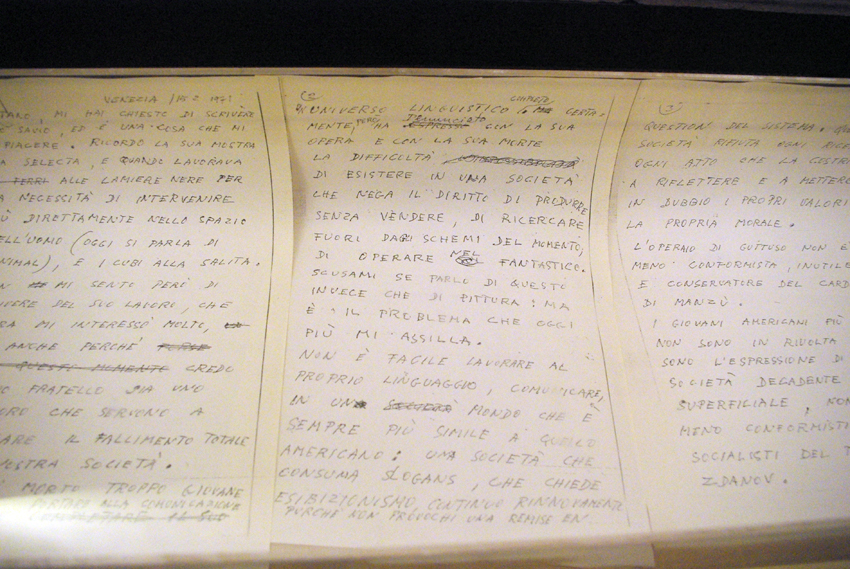 VENEZIA
MI HAI CHIESTO DI SCRIVERE
SAVIO, ED È UNA COSA CHE MI
PIACERE. RICORDO LA SUA MOSTRA
SELECTA, E QUANDO LAVORAVA
ALLE LAMIERE NERE PER
NECESSITÀ DI INTERVENIRE
DIRETTAMENTE NELLO SPAZIO
(OGGI SI PARLA DI
E I CUBI ALLA SALITA.
MI SENTO PERÒ DI
DEL SUO LAVORO, CHE
MI INTERESSÒ MOLTO,
ANCHE PERCHÉ
QUESTI MOMENTO CREDO
FRATELLO SIA UNO
CHE SERVONO A
IL FALLIMENTO TOTALE
SOCIETÀ.
MORTO TROPPO GIOVANE
PORTARE ALLA COMUNICAZIONE
COMPLETARE IL SUO
2
UNIVERSO LINGUISTICO COMPLETO CERTA-
MENTE, PERÒ HA DENUNCIATO CON LA SUA
OPERA E CON LA SUA MORTE
LA DIFFICOLTÀ
DI ESISTERE IN UNA SOCIETÀ
CHE NEGA IL DIRITTO DI PRODURRE
SENZA VENDERE, DI RICERCARE
FUORI DAGLI SCHEMI DEL MOMENTO,
DI OPERARE NEL FANTASTICO.
SCUSAMI SE PARLO DI QUESTO
INVECE CHE DI PITTURA: MA
È IL PROBLEMA CHE OGGI
PIÙ MI ASSILLA.
NON È FACILE LAVORARE AL
PROPRIO LINGUAGGIO, COMUNICARE,
IN UN SOCIETÀ MONDO CHE È
SEMPRE PIÙ SIMILE A QUELLO
AMERICANO: UNA SOCIETÀ CHE
CONSUMA SLOGANS, CHE CHIEDE
ESIBIZIONISMO, CONTINUO RINNOVAMENTO
PURCHÉ NON PROVOCHI UNA REMISE EN
3
QUESTION DEL SISTEMA.
SOCIETÀ RIFIUTA OGNI
OGNI ATTO CHE LA
A RIFLETTERE E A METTERE
IN DUBBIO I PROPRI VALORI
LA PROPRIA MORALE.
L'OPERAIO DI GUTTUSO NON È
MENO CONFORMISTA, INUTILE
E CONSERVATORE DEL
DI MANZÙ.
I GIOVANI AMERICANI PIÙ
NON SONO IN RIVOLTA
SONO L'ESPRESSIONE DI
SOCIETÀ DECADENTE
SUPERFICIALE, NON
MENO CONFORMISTI
SOCIALISTI DEL
ZDANOV.